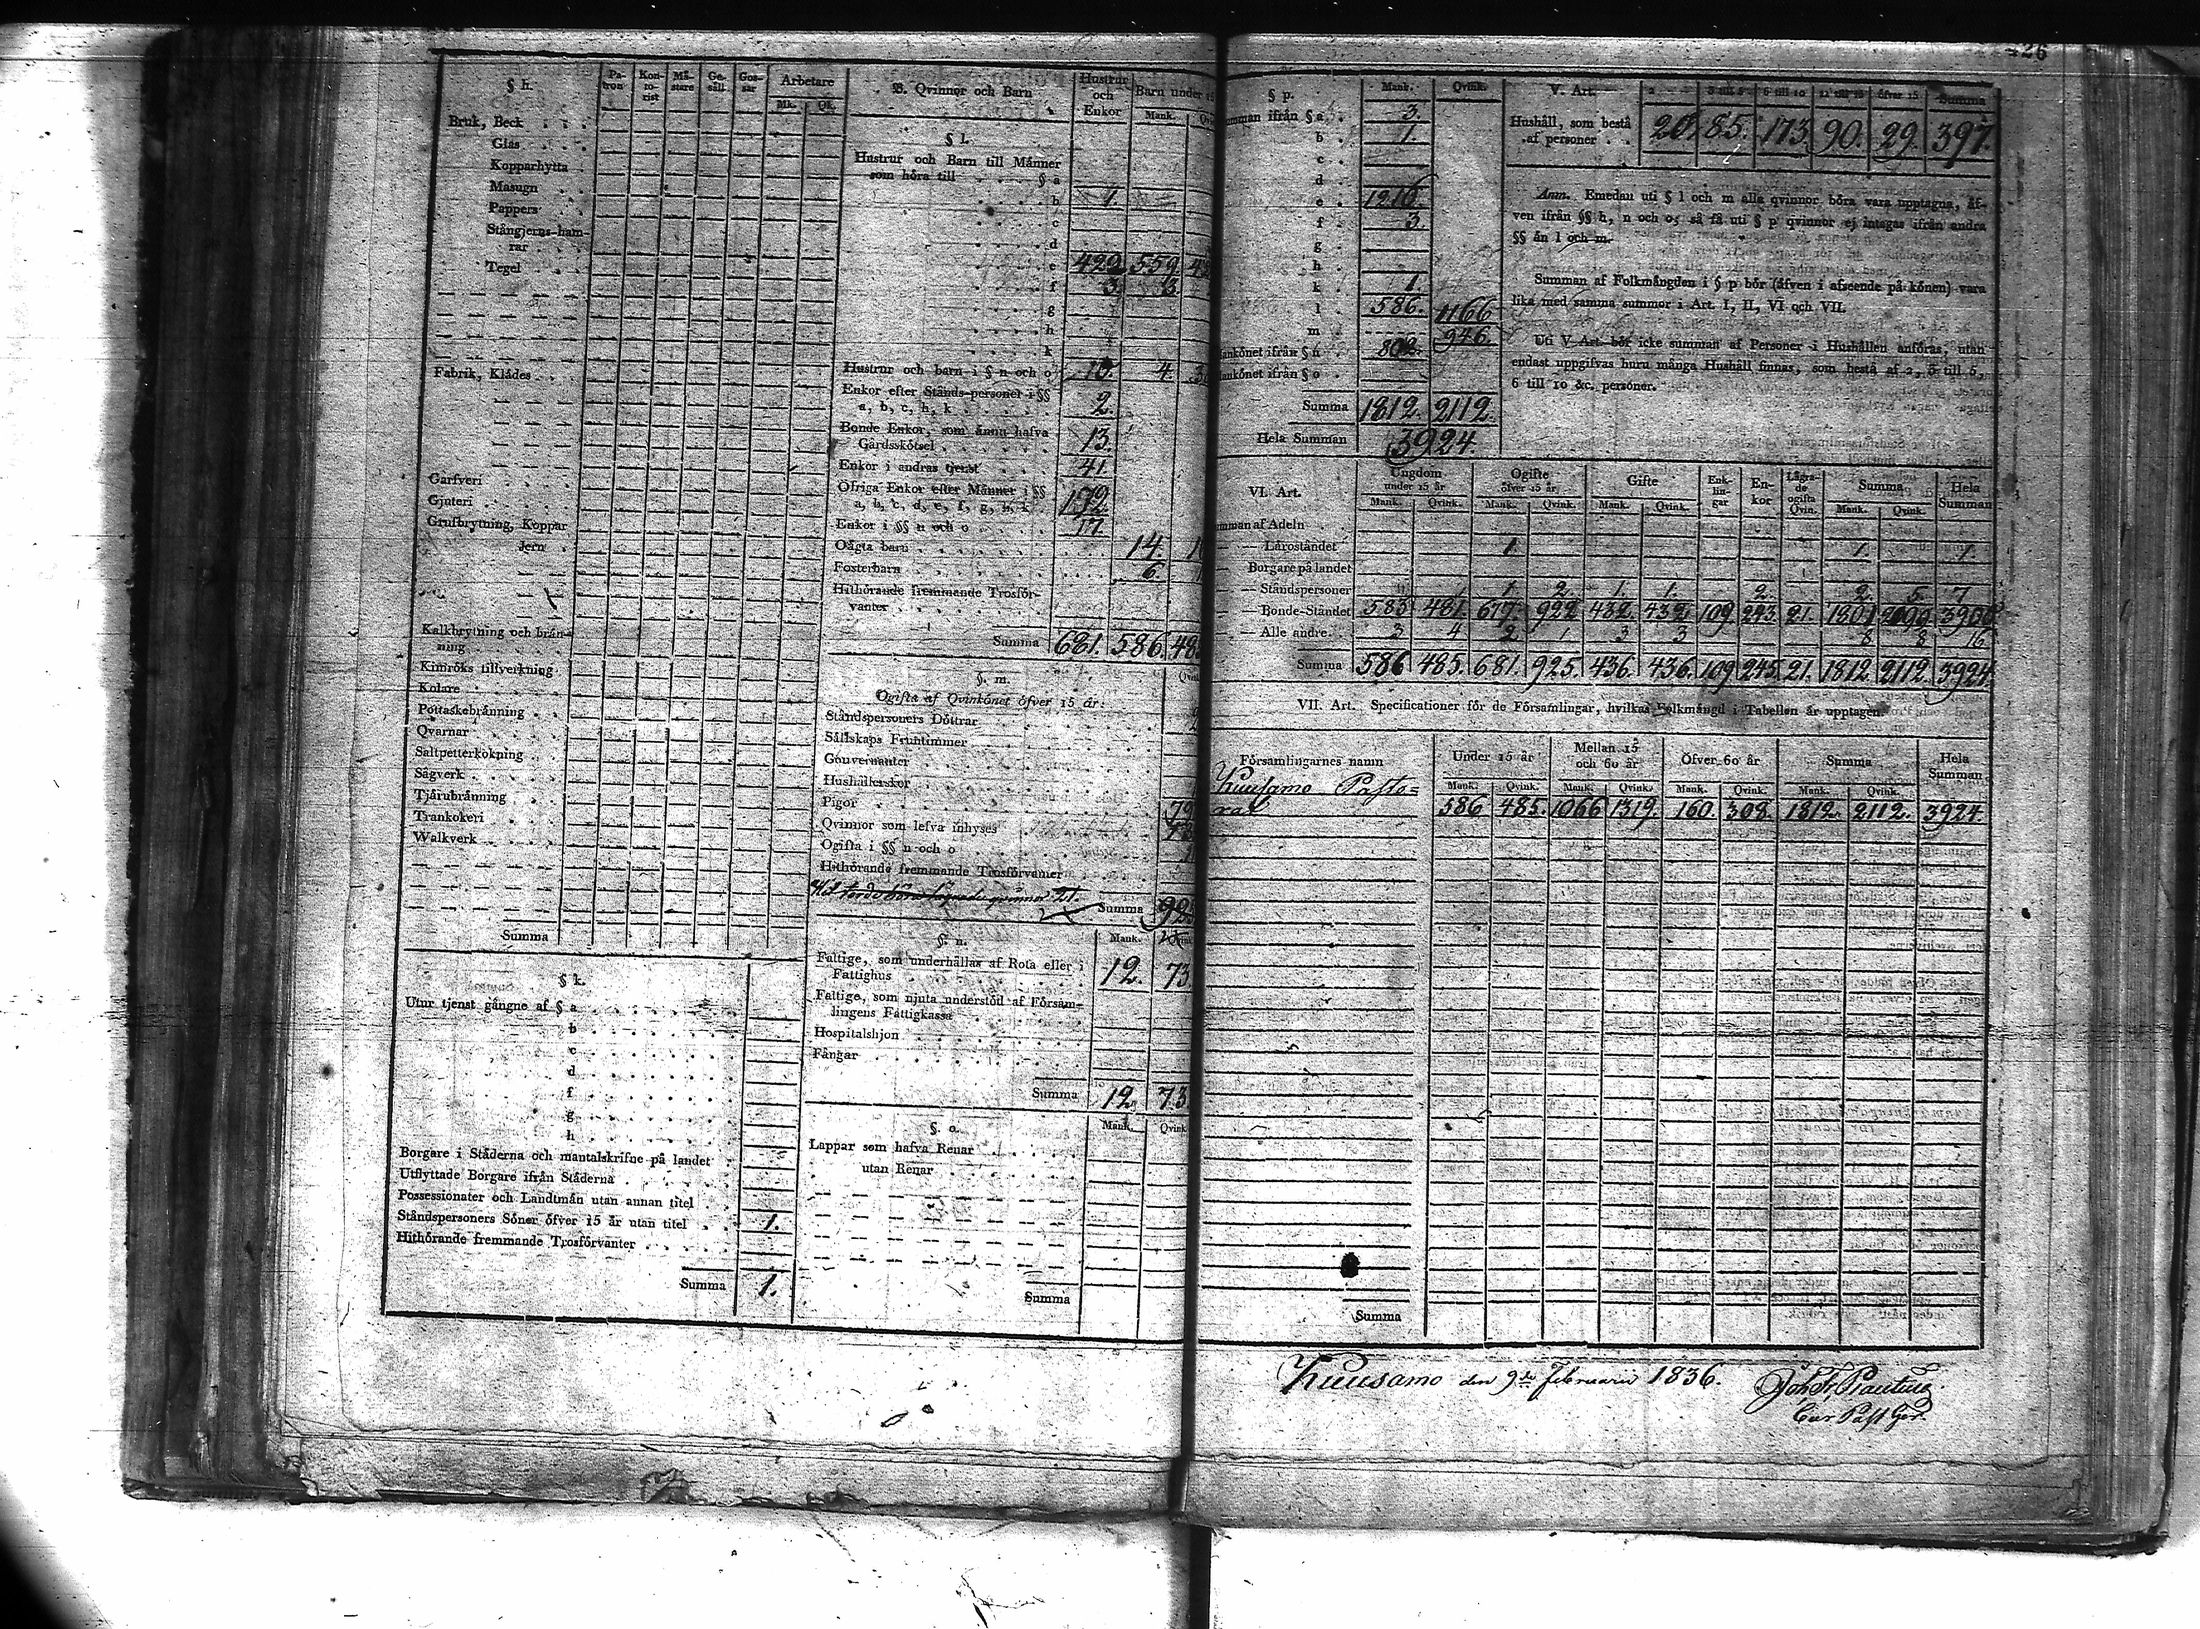 426
§ h.
Pa-
tron
Kon-
to-
rist
Mä-
stare
Ge-
säll
Gos-
sar
Arbetare
Mk.
Qk.
Bruk, Beck
Glas
Kopparhytta
Masugn
Pappers
Stångjerns-ham-
rar
Tegel
Fabrik, Klädes
Garfveri
Gjuteri
Grufbrytning, Koppar
Jern
Kalkbrytning och brän-
ning
Kimröks tillverkning
Kolare
Pottaskebränning
Qvarnar
Saltpetterkokning
Sågverk
Tjärubränning
Trankokeri
Walkverk
Summa
§ k.
Utur tjenst gångne af § a
b
c
d
f
g
h
Borgare i Städerna och mantalskrifne på landet
Utflyttade Borgare ifrån Städerna
Possessionater och Landtmän utan annan titel
Ståndspersoners Söner öfver 15 år utan titel 1.
Hithörande fremmande Trosförvanter
Summa 1.
B. Qvinnor och Barn
Hustrur
och
Enkor
Barn under 15
Mank.
§ l.
Hustrur och Barn till Männer
som höra till § a
b 1.
c
d
e 422 559
f 3. 3.
g
h
k
Hustrur och barn i § n och o 10. 4.
Enkor efter Stånds-personer i §§
a, b, c, h, k 2.
Bonde Enkor, som ännu hafva
Gårdsskötsel 13.
Enkor i andras tjenst 41.
Öfriga Enkor efter Männer i §§
a, b, c, d, e, f, g, h, k 172.
Enkor i §§ n och o 17.
Oägta barn 14.
Fosterbarn 6.
Hithörande fremmande Trosför-
vanter
Summa 681. 586. 485
§. m.
Ogifta af Qvinkönet öfver 15 år:
Ståndspersoners Döttrar
Sällskaps Fruntimmer
Gouvernanter
Hushållerskor
Pigor
Qvinnor som lefva inhyses
Ogifta i §§ n och o
Hithörande fremmande Trosförvanter
21.
Summa 925
§. n.
Mank.
Fattige, som underhållas af Rota eller i
Fattighus 12. 73.
Fattige, som njuta understöd af Försam-
lingens Fattigkassa
Hospitalshjon
Fångar
Summa 12. 73
§. o.
Mank. Qvink
Lappar som hafva Renar
utan Renar
Summa
§ p.
Mank. Qvink.
Summan ifrån § a 3.
b 1.
c
d
e 1216.
f 3.
g
h
k 1.
l 586. 1166
m 946.
Mankönet ifrån § n 802.
Mankönet ifrån § o
Summa 1812. 2112.
Hela Summan 3924.
V. Art. 2 3 till 5 6 till 10 11 till 15 öfver 15 Summa
Hushåll, som bestå
af personer 20. 85. 173. 90. 29. 397.
Anm. Emedan uti § l och m alla qvinnor böra vara upptagna, äf-
ven ifrån §§ h, n och o, så få uti § p qvinnor ej intagas ifrån andra
§§ än l och m.
Summan af Folkmängden i § p bör (äfven i afseende på könen) vara
lika med samma summor i Art. I, II, VI och VII.
Uti V Art. bör icke summan af Personer i Hushållen anföras, utan
endast uppgifvas huru många Hushåll finnas, som bestå af 2, 3 till 5,
6 till 10 &c. personer.
VI. Art.
Ungdom
under 15 år
Ogifte
öfver 15 år
Gifte
Enk-
lin-
gar
En-
kor
Lägra-
de
ogifta
Qvin.
Summa
Hela
Summan
Mank. Qvink. Mank. Qvink. Mank. Qvink. Mank. Qvink.
Summan af Adeln
— Läroståndet 1 1. 1.
— Borgare på landet
— Ståndspersoner 1 2. 1. 1. 2. 2. 5. 7
— Bonde-Ståndet 583 481 677 922 432. 432 109 243 21. 1801 2099 3900
— Alle andre 3 4 2 1 3 3 8 8 16
Summa 586 485. 681. 925. 436. 436. 109 245 21. 1812 2112. 3924
VII. Art. Specificationer för de Församlingar, hvilkas Folkmängd i Tabellen är upptagen.
Församlingarnes namn
Under 15 år
Mellan 15
och 60 år
Öfver 60 år
Summa
Hela
Summan
Mank. Qvink. Mank. Qvink. Mank. Qvink. Mank. Qvink.
Kuusamo Pasto=
rat 586 485. 1066 1319. 160. 308. 1812. 2112. 3924.
Summa
Kuusamo den 9de Februarii 1836.